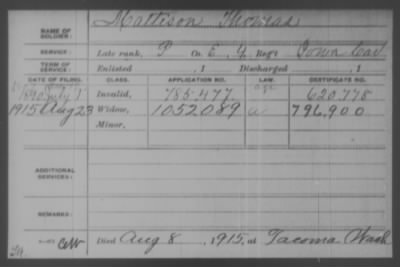 NAME OF SOLDIER: Mattison Thomas
SERVICE: Late rank, P Co. E, 4 Reg't Iowa Cav
TERM OF SERVICE: Enlisted , 1 Discharged , 1
DATE OF FILING. CLASS. APPLICATION NO. LAW. CERTIFICATE NO.
1890 July 1 Invalid, 785.477 age 620.778
1915 Aug 23 Widow, 1052089 a 796,900
Minor,
ADDITIONAL SERVICES:
REMARKS:
Died Aug 8, 1915, at Tacoma Wash